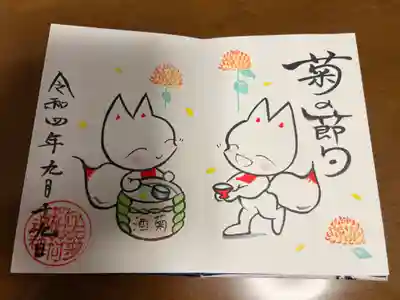 菊の節句
菊酒
令和四年九月十